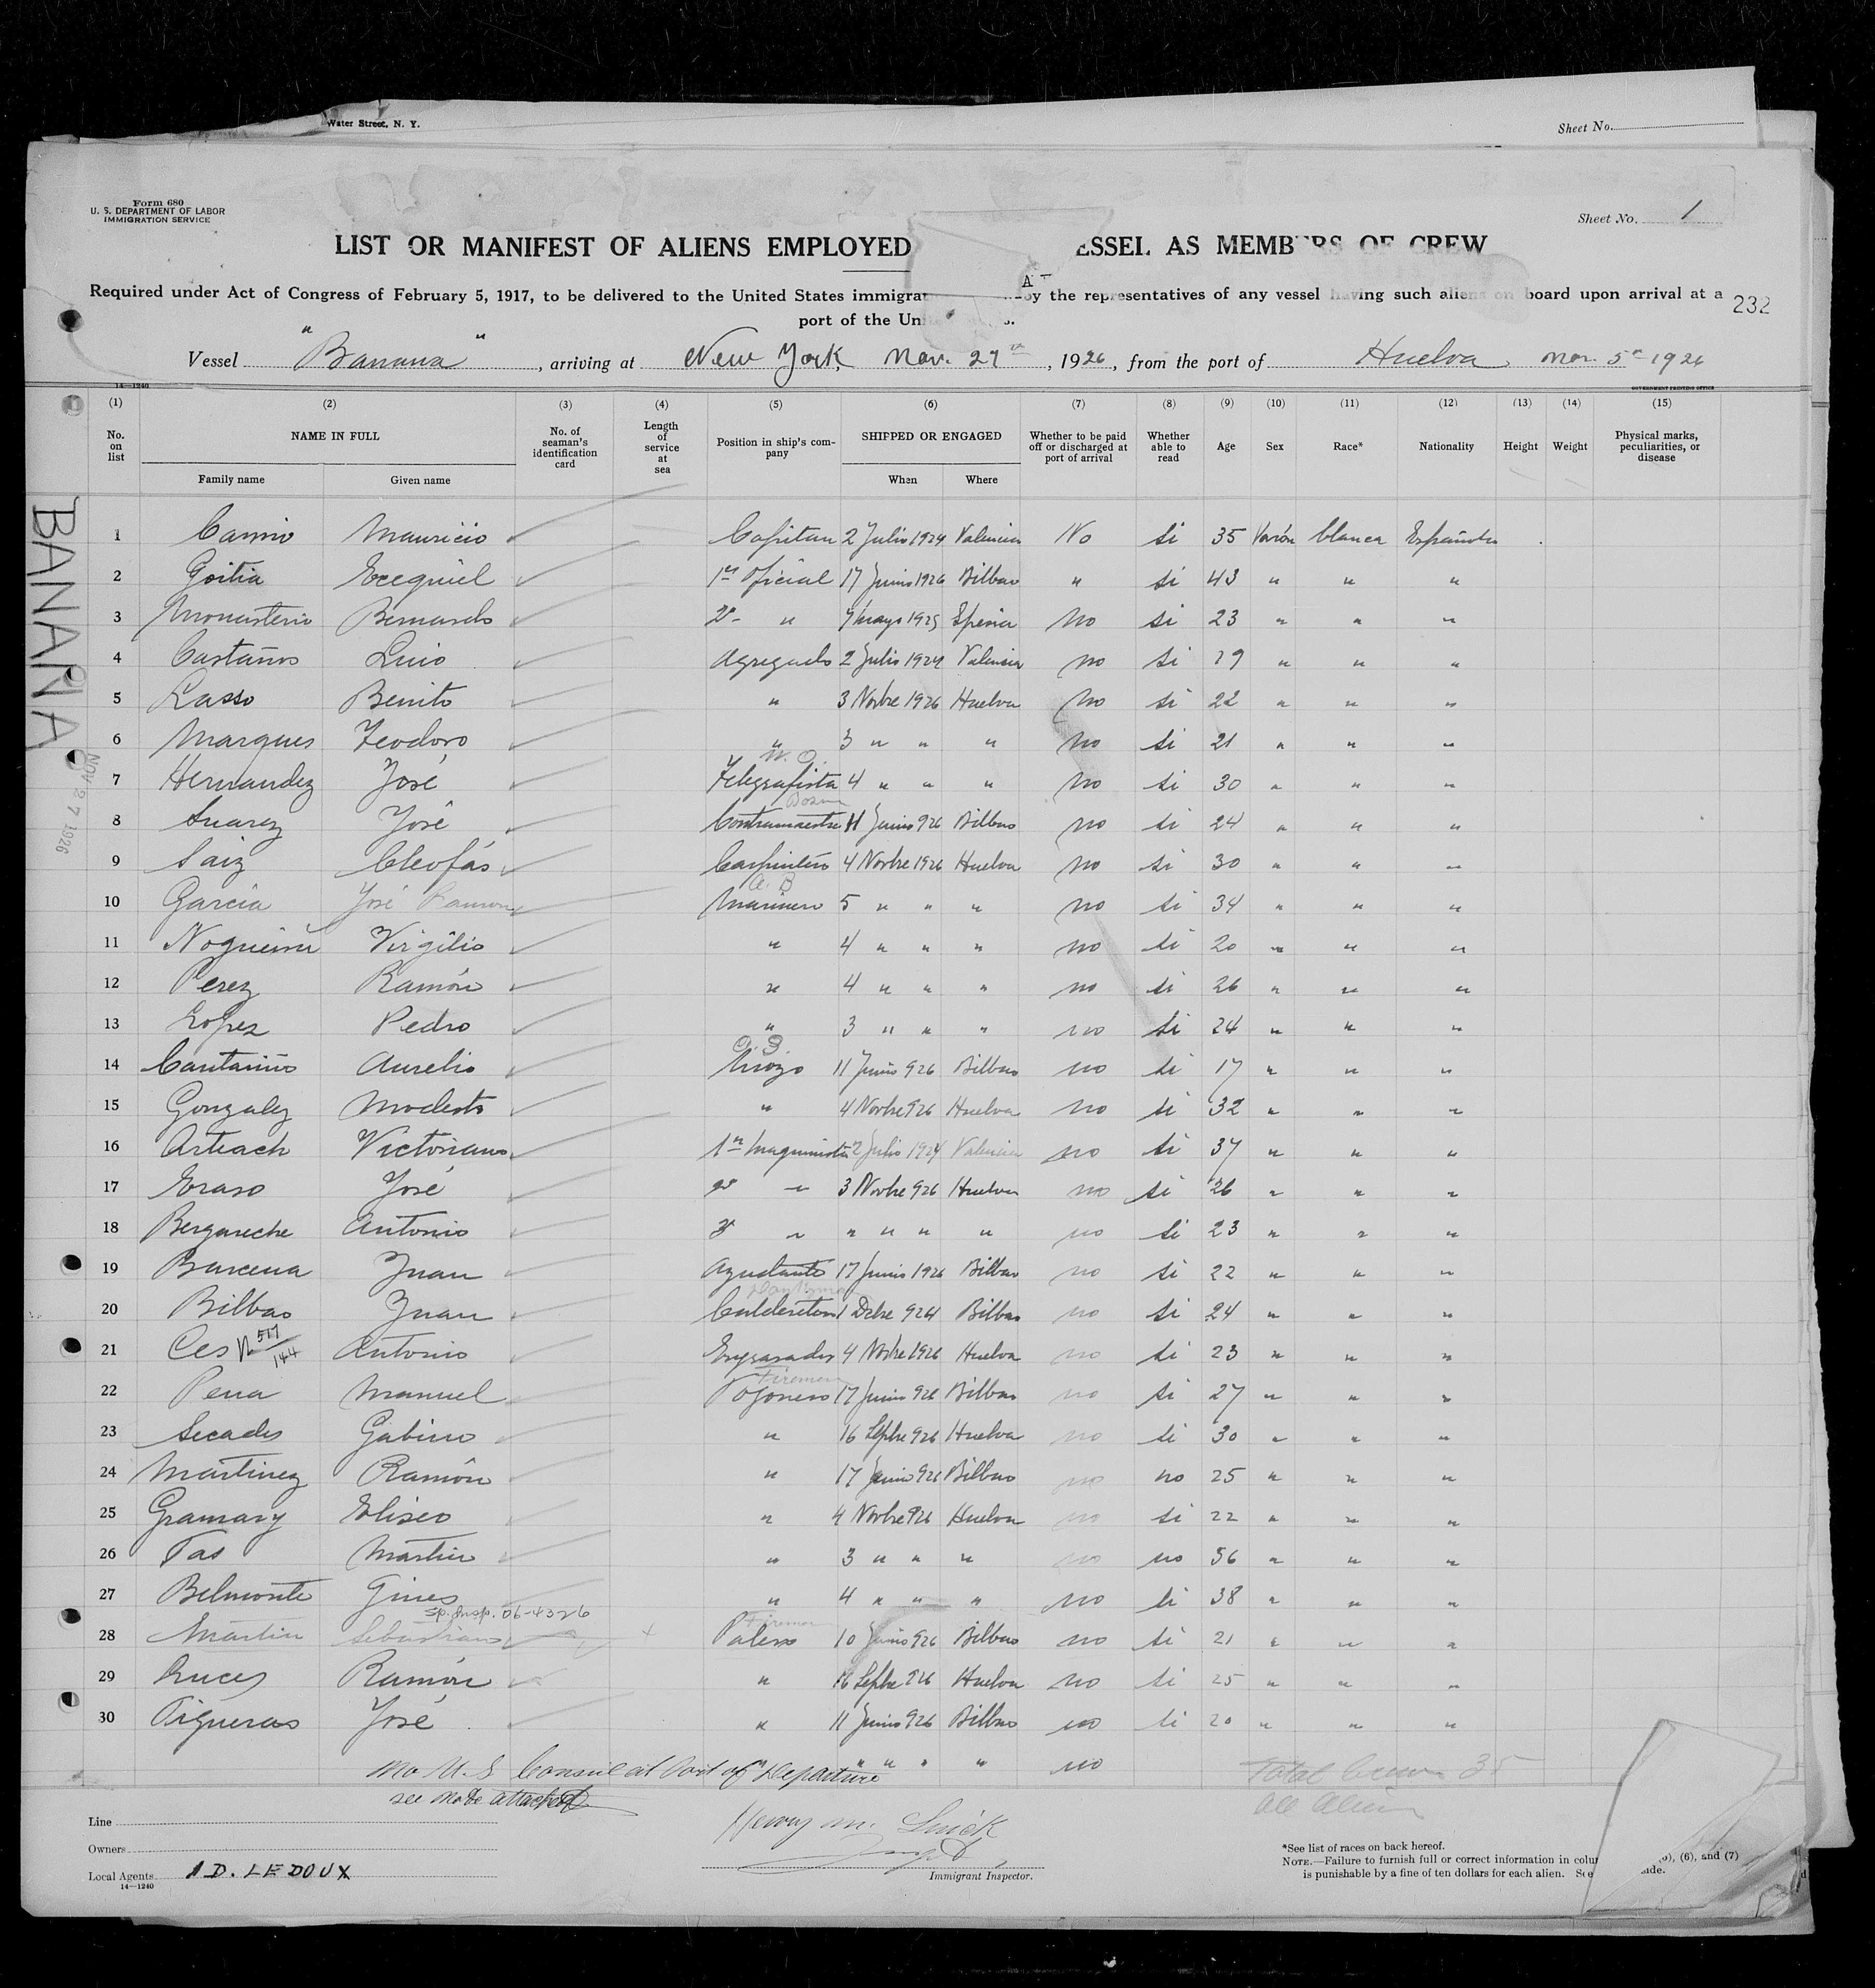 Water Street, N. Y.
Sheet No.
Form 680
U. S. DEPARTMENT OF LABOR
IMMIGRATION SERVICE
Sheet No. 1
LIST OR MANIFEST OF ALIENS EMPLOYED ESSEL AS MEMBERS OF CREW
Required under Act of Congress of February 5, 1917, to be delivered to the United States immigra by the representatives of any vessel having such aliens on board upon arrival at a
port of the Un s.
232
Vessel "Banana", arriving at New York, Nov. 27th, 1926, from the port of Huelva Nov. 5th 1926
14—1240
GOVERNMENT PRINTING OFFICE
(1) (2) (3) (4) (5) (6) (7) (8) (9) (10) (11) (12) (13) (14) (15)
No. on list NAME IN FULL No. of seaman's identification card Length of service at sea Position in ship's company SHIPPED OR ENGAGED Whether to be paid off or discharged at port of arrival Whether able to read Age Sex Race* Nationality Height Weight Physical marks, peculiarities, or disease
Family name Given name When Where
BANANA
NOV 27 1926
1 Mauricio Capitan 2 Julio 1924 Valencia No si 35 Varón blanca Española
2 Goitia Ezequiel 1er Oficial 17 Junio 1926 Bilbao " si 43 " " "
3 Monasterio Bernardo 2º " Mayo 1925 Spezia no si 23 " " "
4 Castaños Luis Agregado 2 Julio 1924 Valencia no si 19 " " "
5 Lasso Benito " 3 Novbre 1926 Huelva no si 22 " " "
6 Marques Teodoro " 3 " " " no si 21 " " "
W. O.
7 Hernandez José Telegrafista 4 " " " no si 30 " " "
Bosn
8 Suarez José Contramaestre 11 Junio 926 Bilbao no si 24 " " "
9 Saiz Cleofás Carpintero 4 Novbre 1926 Huelva no si 30 " " "
A. B
10 García José Ramon Marinero 5 " " " no si 34 " " "
11 Nogueira Virgilio " 4 " " " no si 20 " " "
12 Perez Ramón " 4 " " " no si 26 " " "
13 Lopez Pedro " 3 " " " no si 24 " " "
O. S.
14 Aurelio Mozo 11 Junio 926 Bilbao no si 17 " " "
15 Gonzalez Modesto " 4 Novbre 926 Huelva no si 32 " " "
16 Arteach Victoriano 1er Maquinista 2 Julio 1924 Valencia no si 37 " " "
17 Eraso José 2º " 3 Novbre 926 Huelva no si 26 " " "
18 Bergareche Antonio 3º " " " " " no si 23 " " "
19 Barcena Juan Ayudante 17 Junio 1926 Bilbao no si 22 " " "
20 Bilbao Juan 1 Dbre 924 Bilbao no si 24 " " "
21 Ces 517/144 Antonio Engrasador 4 Novbre 1926 Huelva no si 23 " " "
Firemen
22 Pena Manuel Fogonero 17 Junio 926 Bilbao no si 27 " " "
23 Secades Gabino " 16 Sepbre 926 Huelva no si 30 " " "
24 Martinez Ramón " 17 Junio 926 Bilbao no no 25 " " "
25 Gramary Eliseo " 4 Novbre 926 Huelva no si 22 " " "
26 Martin " 3 " " " no no 56 " " "
27 Belmonte Gines " 4 " " " no si 38 " " "
Sp. Insp. 06-4326
Firemen
28 Martin Sebastian Palero 10 Junio 926 Bilbao no si 21 " " "
29 Ramón " 16 Sepbre 926 Huelva no si 25 " " "
30 Figueras José " 11 Junio 926 Bilbao no si 20 " " "
No U. S Consul at Port of Departure " " " " no
see note attached
Total Crew 35
All Alien
Line
Owners
Local Agents A D. LEDOUX
14—1240
Immigrant Inspector.
*See list of races on back hereof.
NOTE.—Failure to furnish full or correct information in colu ), (6), and (7)
is punishable by a fine of ten dollars for each alien. See side.